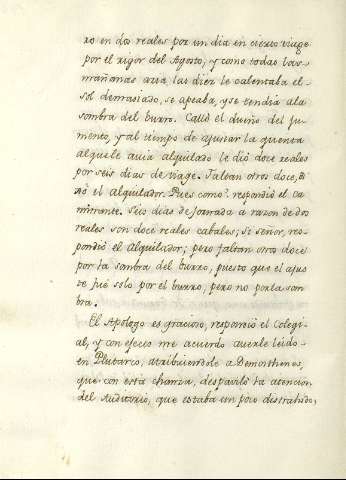 ro en dos reales por un dia en cierto viage
por el rigor del Agosto, y como todas las
mañanas acia las diez le calentaba el
sol demasiado, se apeaba, y se tendia a la
sombra del burro. Calló el dueño del ju-
mento, y al tiempo de ajustar la quenta
al que le avia alquilado le dió doce reales
por seis dias de viage. Faltan otros doce, di-
xo el Alquilador. Pues como? respondió el ca-
minante. Seis dias de jornada a razon de dos
reales son doce reales cabales; si señor, res-
pondió el Alquilador; pero faltan otros doce
por la sombra del burro, puesto que el ajus-
te fué solo por el burro, pero no por la som-
bra.
El Apólogo es gracioso, respondió el Colegi-
al, y con efecto me acuerdo averle leido
en Plutarco, atribuiendole a Demosthenes,
que con esta chanza, despaviló la atencion
del Auditorio, que estaba un poco distrahido,